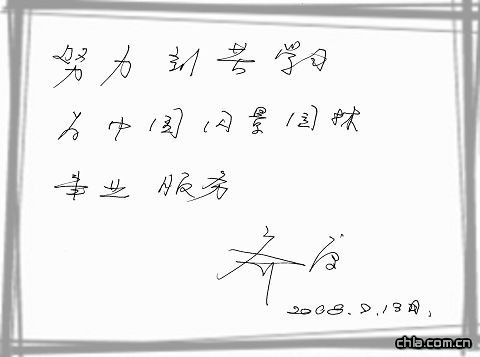 努力刻苦学习
为中国风景园林
事业服务
齐康
2008.8.13日.
chla.com.cn